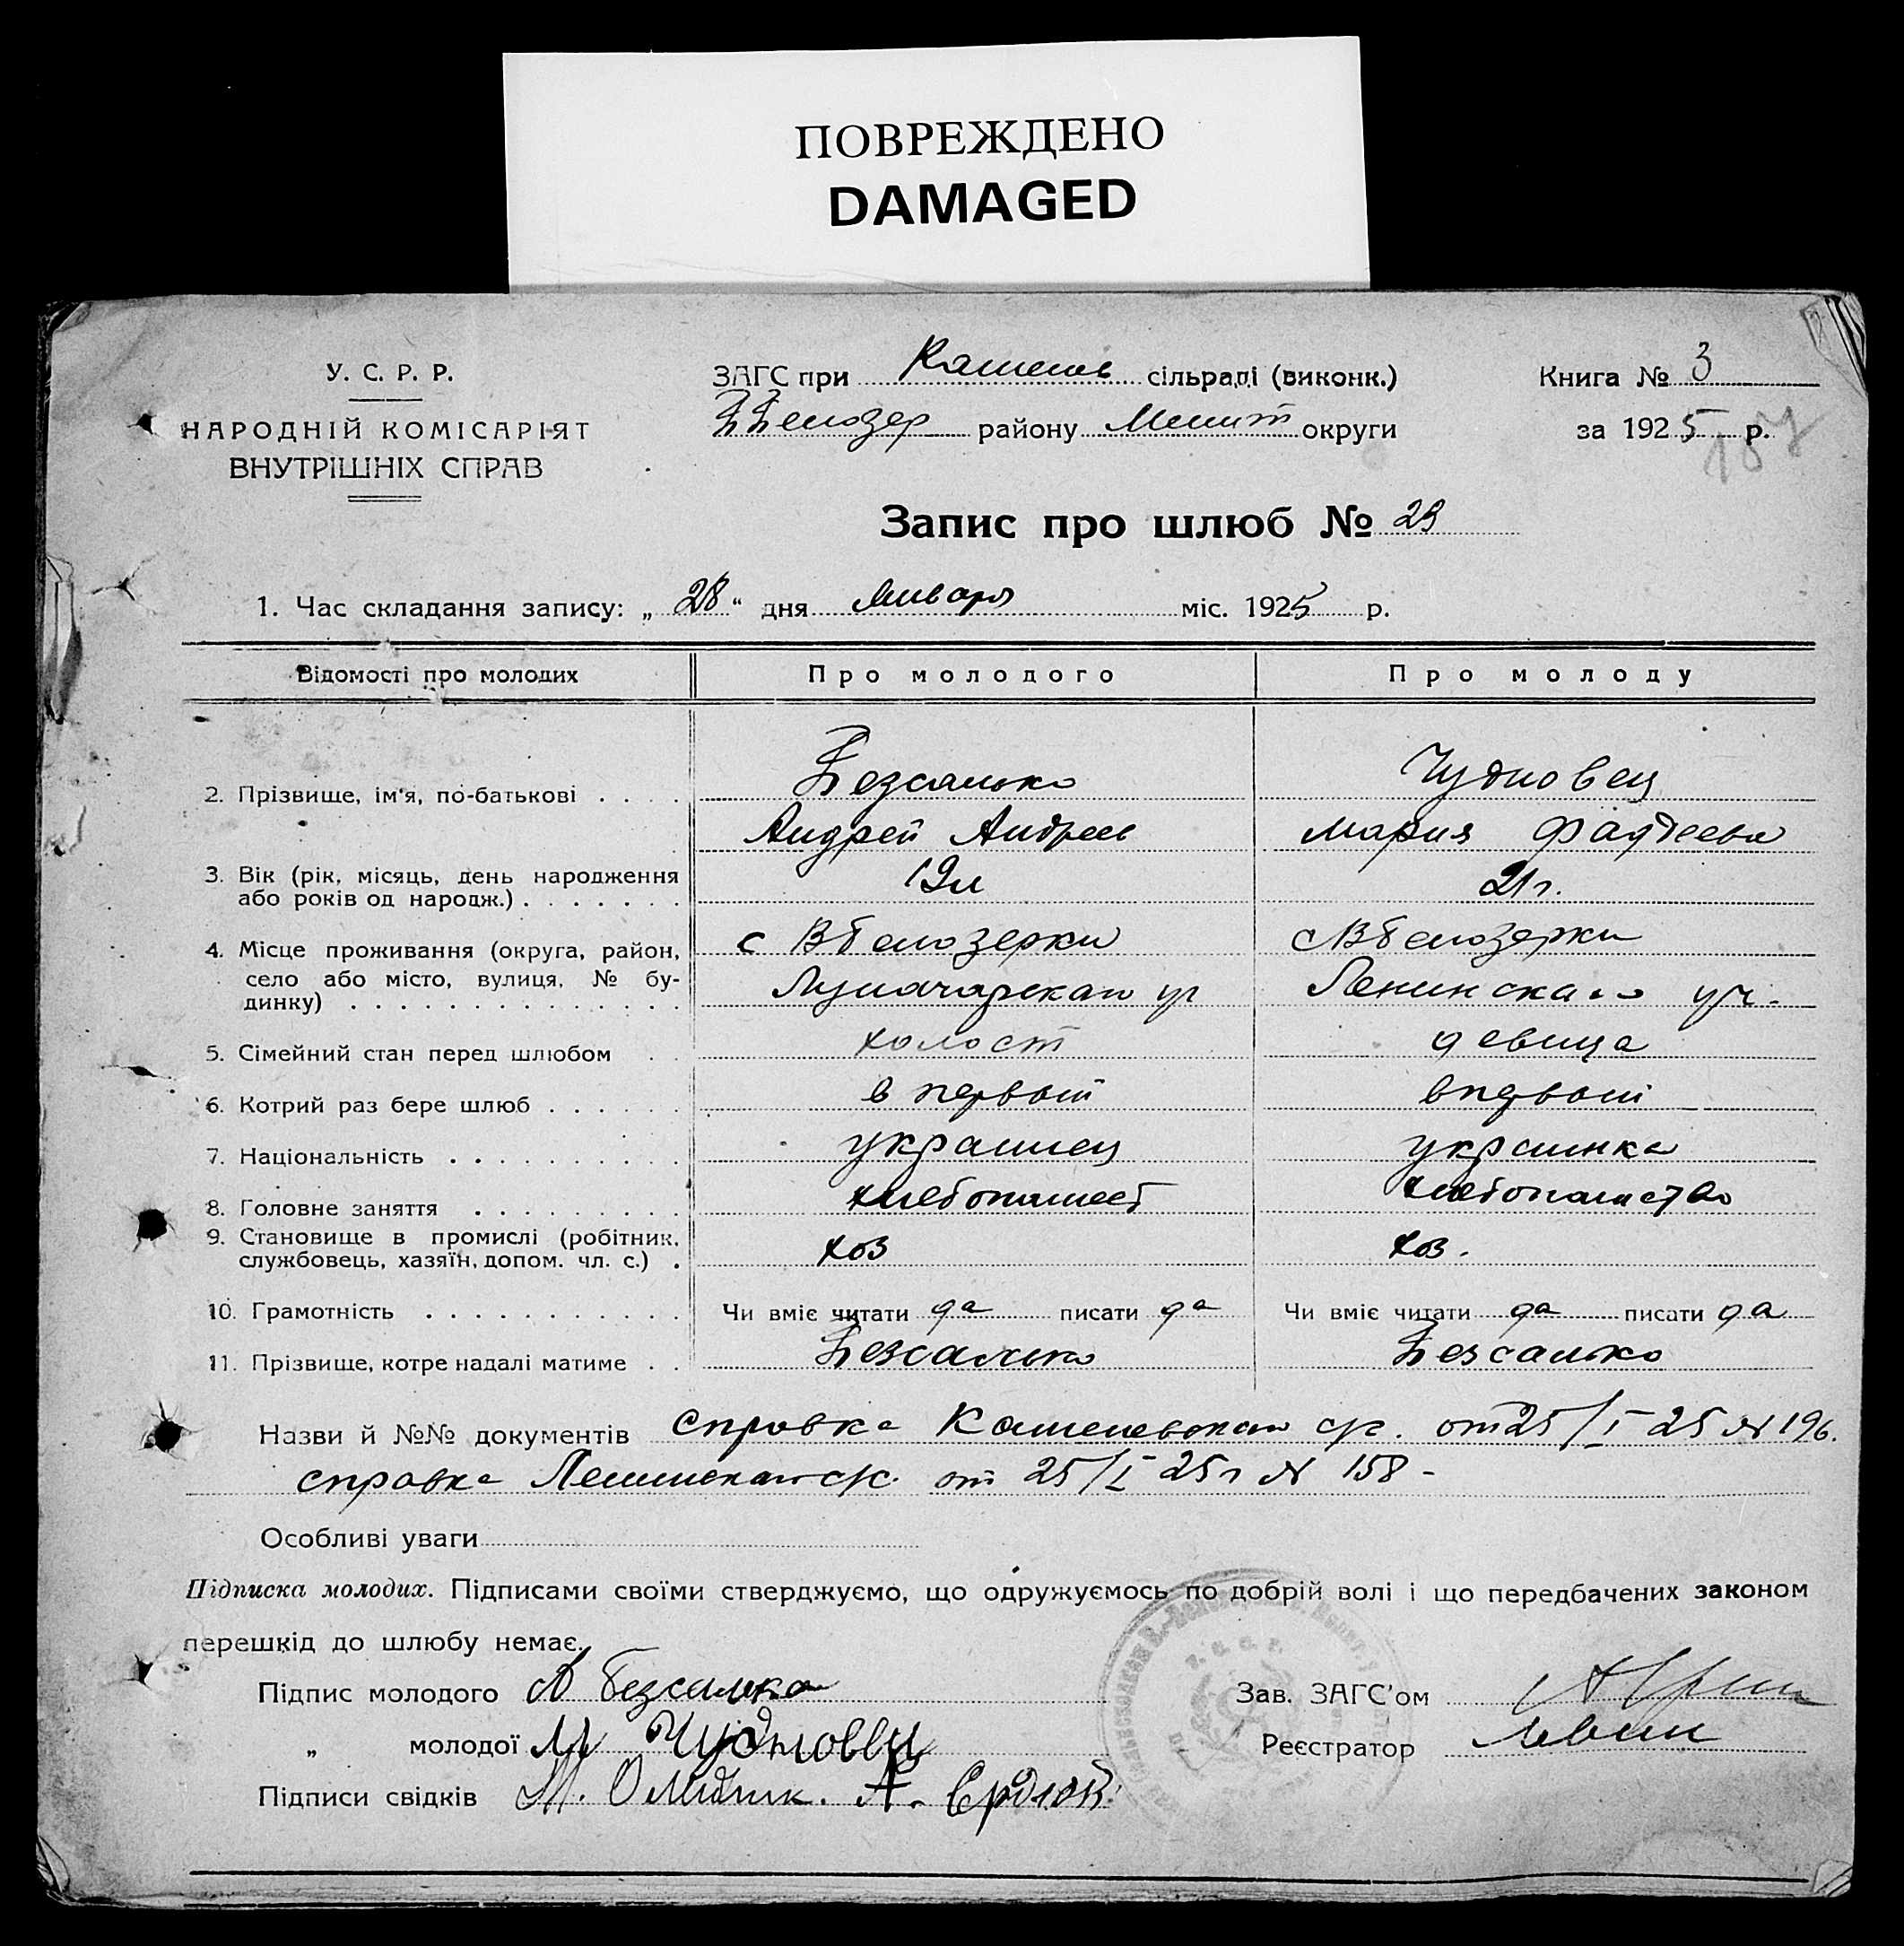 ПОВРЕЖДЕНО
DAMAGED
У. С. Р. Р.
НАРОДНІЙ КОМІСАРІЯТ
ВНУТРІШНІХ СПРАВ
ЗАГС при сільраді (виконк.)
Ббелозер району Мелит округи
Книга № 3
за 1925 р.
Запис про шлюб № 29
1. Час складання запису: „ 28 “ дня Января міс. 1925 р.
Відомості про молодих Про молодого Про молоду
2. Прізвище, ім'я, по-батькові . . . . Безсалько Чудновец
Андрей Андреев Мария Фаддеева
3. Вік (рік, місяць, день народження 19л 21 г.
або років од народж.) . . . . . . .
4. Місце проживання (округа, район, с Вбелозерки с Вбелозерки
село або місто, вулиця, № бу- Луначарская ул Ленинская ул.
динку) . . . . . . . . . . . . . .
5. Сімейний стан перед шлюбом . . холост девица
6. Котрий раз бере шлюб . . . . . . в первый в первый
7. Національність . . . . . . . . . . украинец украинка
8. Головне заняття . . . . . . . . . хлебопашест хлебопашество
9. Становище в промислі (робітник, хоз хоз.
службовець, хазяїн, допом. чл. с.) .
10. Грамотність . . . . . . . . . . . Чи вміє читати да писати да Чи вміє читати да писати да
11. Прізвище, котре надалі матиме . . Безсалько Безсалько
Назви й №№ документів справка с/с. от 25/I 25 N 196.
справка с/с. от 25/I 25 г N 158 -
Особливі уваги
Підписка молодих. Підписами своїми стверджуємо, що одружуємось по добрій волі і що передбачених законом
перешкід до шлюбу немає.
Підпис молодого А Безсалько Зав. ЗАГС'ом
„ молодої М Чудновец Реєстратор
Підписи свідків